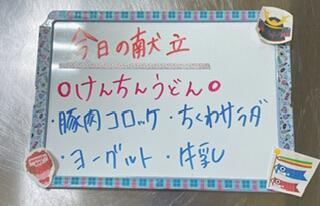 今日の献立
○けんちんうどん○
・豚肉コロッケ・ちくわサラダ
・ヨーグルト・牛乳